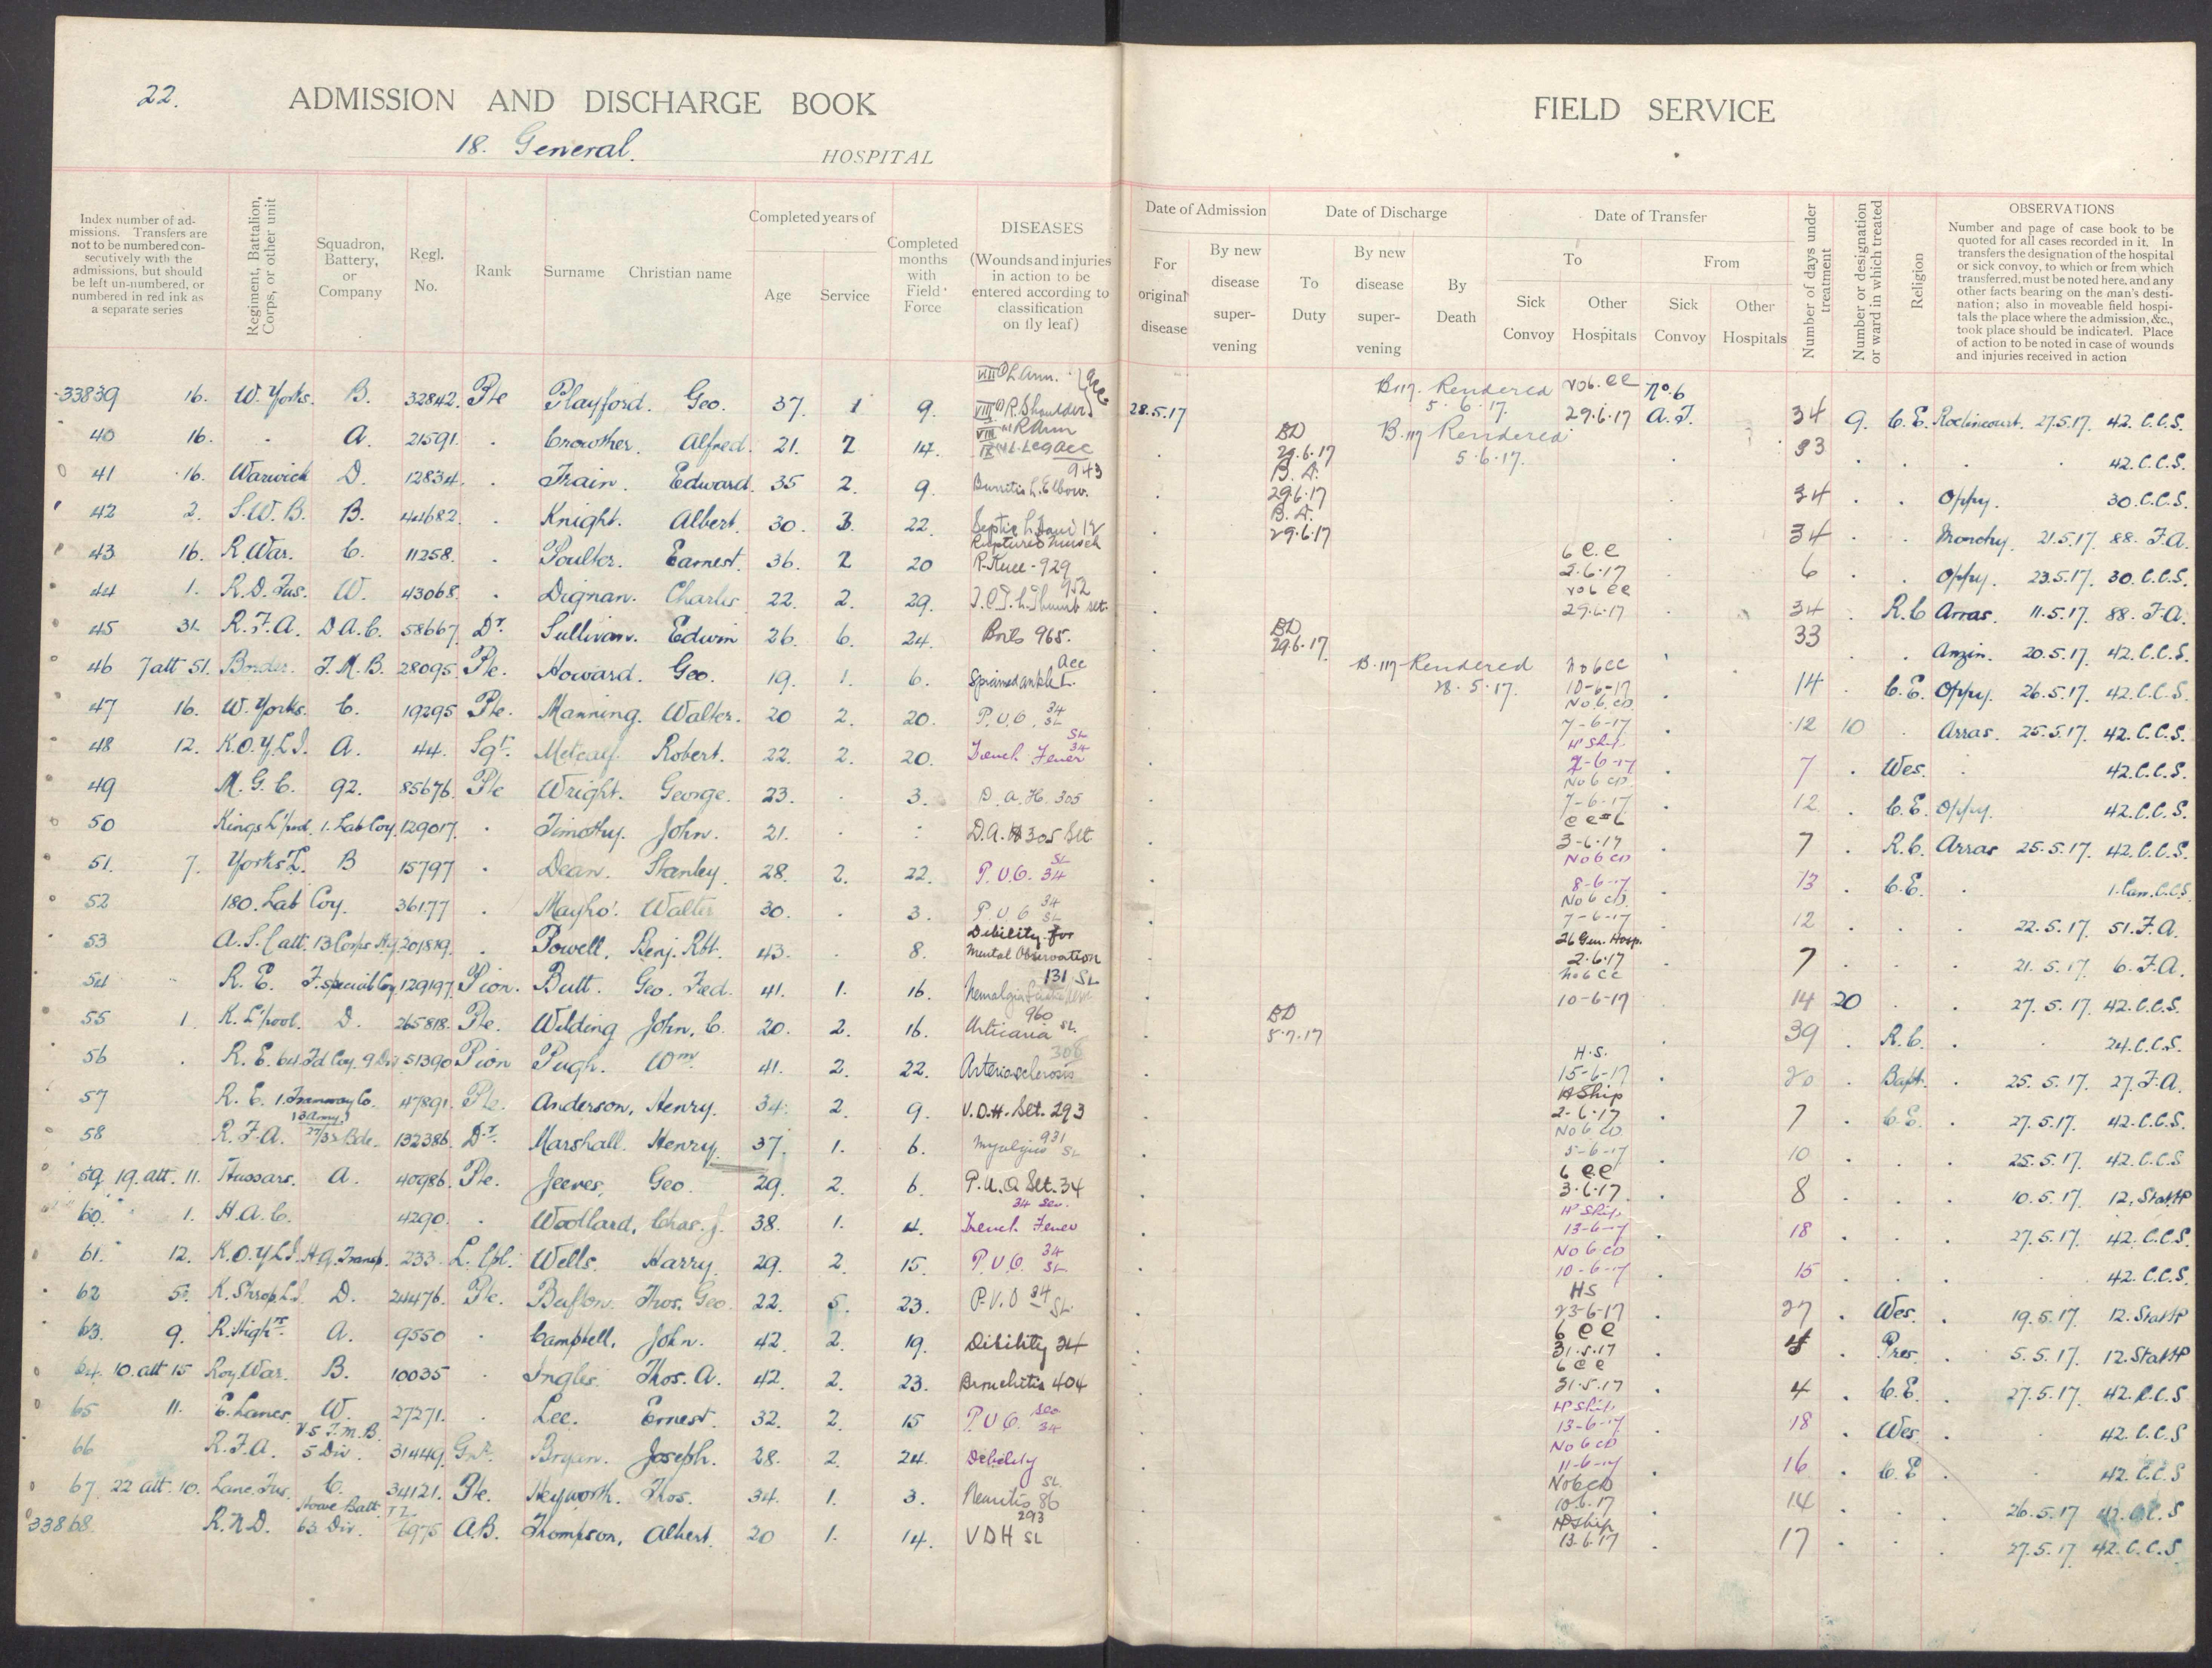 22.
ADMISSION AND DISCHARGE BOOK
18. General. HOSPITAL
FIELD SERVICE
Index number of ad-
missions. Transfers are
not to be numbered con-
secutively with the
admissions, but should
be left un-numbered, or
numbered in red ink as
a separate series
Regiment, Battalion,
Corps, or other unit
Squadron,
Battery,
or
Company
Regl.
No.
Rank
Surname Christian name
Completed years of
Age Service
Completed
months
with
Field
Force
DISEASES
(Wounds and injuries
in action to be
entered according to
classification
on fly leaf)
Date of Admission
For
original
disease
By new
disease
super-
vening
Date of Discharge
To
Duty
By new
disease
super-
vening
By
Death
Date of Transfer
To
Sick
Convoy
Other
Hospitals
From
Sick
Convoy
Other
Hospitals
Number of days under
treatment
Number or designation
or ward in which treated
Religion
OBSERVATIONS
Number and page of case book to be
quoted for all cases recorded in it. In
transfers the designation of the hospital
or sick convoy, to which or from which
transferred, must be noted here, and any
other facts bearing on the man's desti-
nation; also in moveable field hospi-
tals the place where the admission, &c.,
took place should be indicated. Place
of action to be noted in case of wounds
and injuries received in action
33839 16. W. Yorks. B. 32842. Pte Playford. Geo. 37. 1 9. R. Shoulder 28.5.17 B117. Rendered 5.6.17. 29.6.17 No. 6 A.T. 34 9. C.E. Roclincourt. 27.5.17. 42. C.C.S.
40 16. . A. 21591. . Crowther. Alfred. 21. 2 14. R Arm L. Leg acc . BD 29.6.17 B.117 Rendered 5.6.17. 33 . . . 42.C.C.S.
41 16. Warwick D. 12834. . Train. Edward. 35 2. 9. Bursitis L. Elbow. 943 . B.D. 29.6.17 34 . . Oppy. 30.C.C.S.
42 2. S.W.B. B. 44682. . Knight. Albert. 30. 3. 22. Septic L. . B.D. 29.6.17 34 . . Monchy. 21.5.17. 88. F.A.
43 16. R. War. C. 11258. . Poulter. Earnest. 36. 2 20 Ruptured muscle R. Knee - 929 . 6 C.C 2.6.17 6 . . Oppy. 23.5.17. 30. C.C.S.
44 1. R.D. Fus. W. 43068. . Dignan. Charles 22. 2. 29. I.C.T. L. Thumb 952 . 29.6.17 34 . R.C Arras. 11.5.17. 88. F.A.
45 31. R.F.A. D.A.C. 58667. Dr. Sullivan. Edwin 26. 6. 24. Boils 965. . BD 29.6.17 33 . . Anzin. 20.5.17. 42.C.C.S.
46 7 att 51. Border. T.M.B. 28095. Pte. Howard. Geo. 19. 1. 6. Sprained ankle L. acc . B.117 Rendered 28.5.17. No 6 CC 10-6-17 14 . C.E. Oppy. 26.5.17. 42.C.C.S.
47 16. W. Yorks. C. 19295 Pte. Manning. Walter. 20 2. 20. P.U.O. 34 SL . No. 6. CO. 7-6-17 12 10 . Arras. 25.5.17. 42.C.C.S.
48 12. K.O.Y.L.I. A. 44. Sgt. Metcalf. Robert. 22. 2. 20. Trench Fever SL 34 . H Ship 2-6-17 7 . Wes. . 42.C.C.S.
49 M.G.C. 92. 85676. Pte Wright. George. 23. . 3. D.A.H. 305 . No 6 CO. 7-6-17 12 . C.E. Oppy. 42.C.C.S.
50 Kings L'pool. 1. Lab Coy. 129017. . Timothy. John. 21. . . D.A.H 305 Slt. . CC 6 3-6-17 7 . R.C. Arras 25.5.17. 42.C.C.S.
51. 7. Yorks L. B 15797 . Dean. Stanley. 28. 2. 22. P.U.O. 34 SL . No 6 CO 8-6-17 13 . C.E. . 1. Can. C.C.S.
52 180. Lab Coy. 36177 . Mayho. Walter 30. . 3. P.U.O 34 SL . No 6 CO. 7-6-17 12 . . . 22.5.17. 51. F.A.
53 201819. . Powell. Benj. Rbt. 43. . 8. Debility for Mental Observation . 26 Gen. Hosp. 2.6.17 7 . . . 21.5.17. 6. F.A.
54 R.E. F. Special Coy. 129197. Pion. Butt. Geo. Fred. 41. 1. 16. Neuralgia 131 SL . No 6 CC 10-6-17 14 20 . . 27.5.17. 42.C.C.S.
55 1. K. L'pool. D. 265818. Pte. Wilding John. C. 20. 2. 16. Urticaria 960 SL. . BD 5.7.17 39 . R.C. . 24.C.C.S.
56 . R.E. 64. Fd Coy. 9 Div 51390 Pion Pugh. Wm. 41. 2. 22. Arteriosclerosis 308 . H.S. 15-6-17 20 . Bapt. . 25.5.17. 27. F.A.
57 R.E. 1. Tramway Co. 47891. Pte. Anderson, Henry. 34. 2. 9. V.D.H. Slt. 293 . H Ship 2-6-17 7 . C.E. . 27.5.17. 42.C.C.S.
58 R.F.A. 132386. Dr. Marshall. Henry. 37. 1. 6. Myalgia 931 SL . No 6 CO. 5-6-17 10 . . . 25.5.17. 42.C.C.S
59. 19. att. 11. Hussars. A. 40986. Pte. Jeeves, Geo. 29. 2. 6. P.U.O Slt. 34 . 6 CC 3.6.17 8 . . . 10.5.17. 12. Stat. H
60. 1. H.A.C. 4290. . Woollard, Chas. J. 38. 1. 4. Trench Fever 34 Sev. . H Ship 13-6-17 18 . . . 27.5.17. 42.C.C.S.
61. 12. K.O.Y.L.I. H.Q. Transp. 233. L. Cpl. Wells. Harry. 29. 2. 15. P.U.O. 34 SL . No 6 CO 10-6-17 15 . . . 42.C.C.S.
62 5. K. Shrop. L.I. D. 24476. Pte. Thos. Geo. 22. 5. 23. P.U.O 34 SL. . HS 23-6-17 27 . Wes. . 19.5.17. 12. Stat H
63. 9. R. Highrs. A. 9550 . Campbell, John. 42. 2. 19. Debility 34 . 6 CC 31.5.17 4 . Pres. . 5.5.17. 12. Stat H
64. 10. att 15 Roy. War. B. 10035 . Ingles. Thos. A. 42. 2. 23. Bronchitis 404 . 6 CC 31.5.17 4 . C.E. . 27.5.17. 42.C.C.S
65 11. E. Lancs. W. 27271. . Lee. Ernest. 32. 2. 15 P.U.O. Sev 34 . H Ship 13-6-17 18 . Wes. . 42.C.C.S
66 R.F.A. V.5 T.M.B. 5 Div. 31449. Gnr. Bryan. Joseph. 28. 2. 24. Debility . No 6 CO 11-6-17 16 . C.E . 42.C.C.S
67. 22 att. 10. Lanc. Fus. C. 34121. Pte. Heyworth. Thos. 34. 1. 3. Neuritis 86 SL. . No 6 CO 10.6.17 14 . . . 26.5.17 42.C.C.S
33868. R.N.D. Howe Batt. 63. Div. TZ 6975 A.B. Thompson, Albert. 20 1. 14. VDH SL 293 . H Ship 13.6.17 17 . . . 27.5.17. 42.C.C.S.